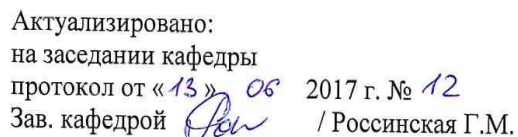 Актуализировано:
на заседании кафедры
протокол от «13» 06 2017 г. № 12
Зав. кафедрой / Россинская Г.М.